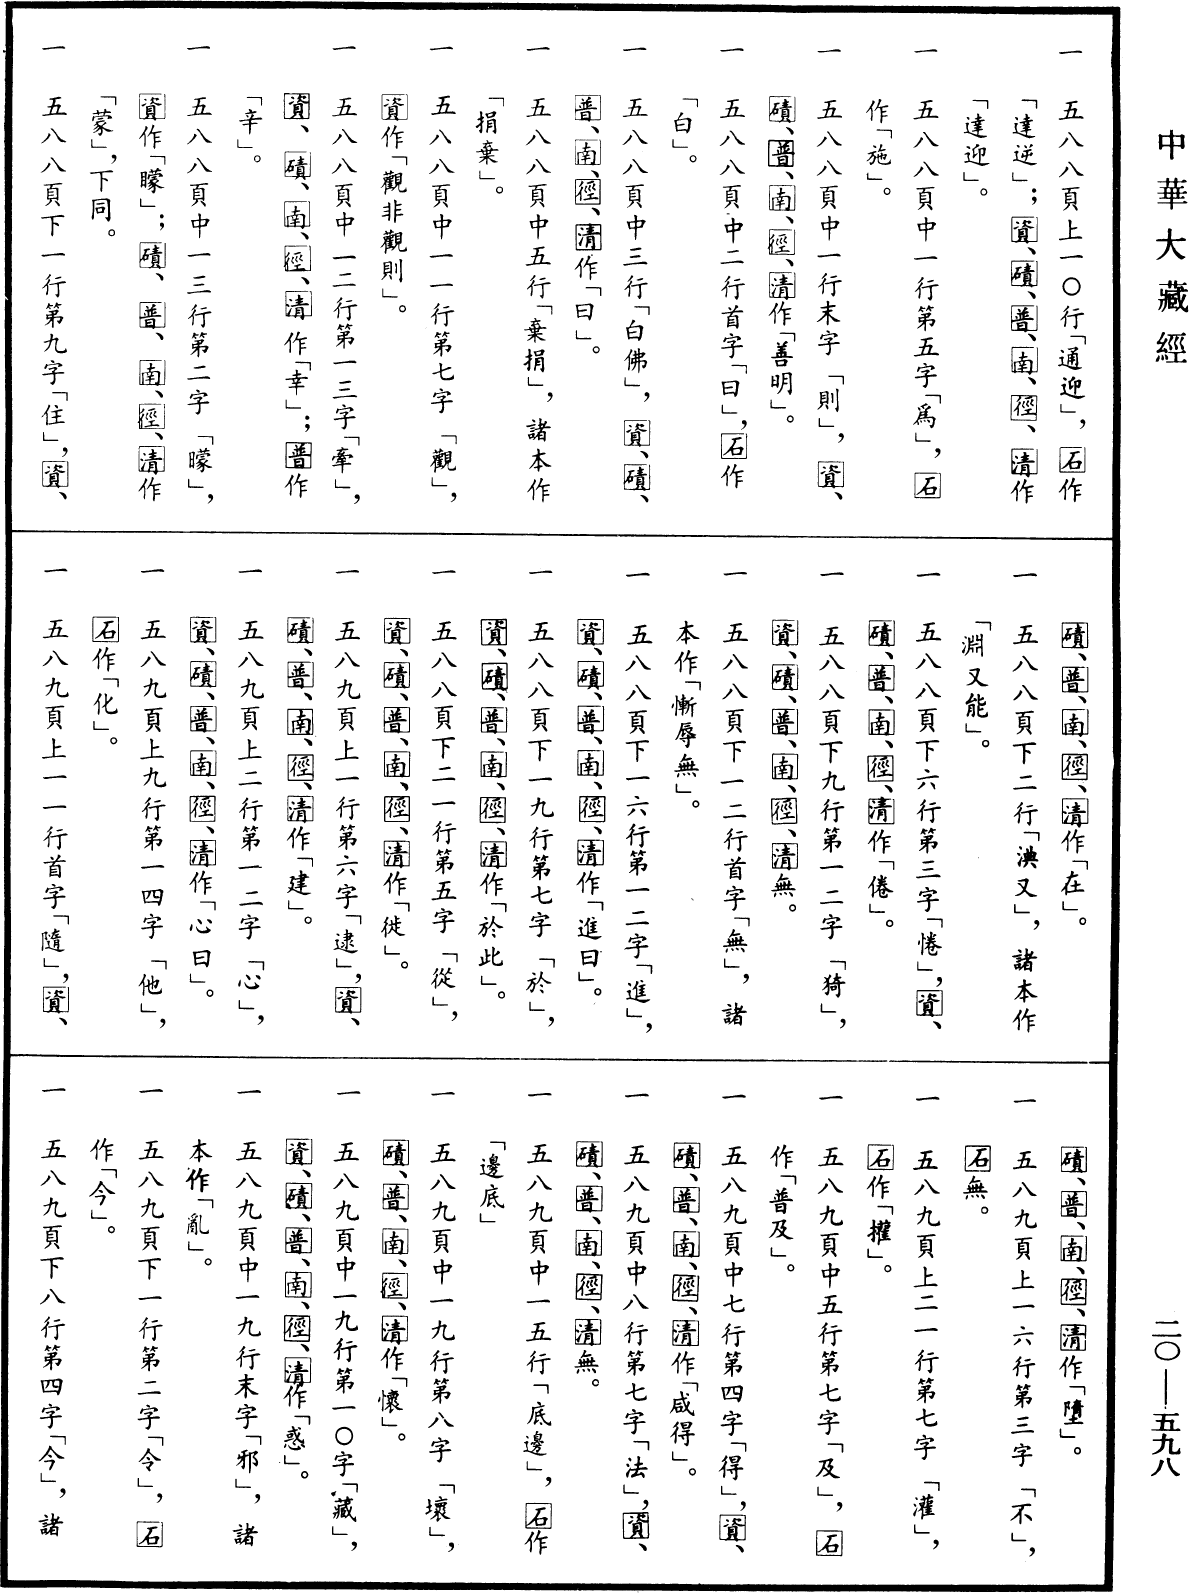 中華大藏經
一 五八八頁上一〇行「通迎」，石作
「達逆」；資、磧、普、南、徑、清作
「達迎」。
一 五八八頁中一行第五字「爲」，石
作「施」。
一 五八八頁中一行末字「則」，資、
磧、普、南、徑、清作「善明」。
一 五八八頁中二行首字「曰」，石作
「白」。
一 五八八頁中三行「白佛」，資、磧、
普、南、徑、清作「曰」。
一 五八八頁中五行「棄捐」，諸本作
「捐棄」。
一 五八八頁中一一行第七字「觀」，
資作「觀非觀則」。
一 五八八頁中一二行第一三字「牽」，
資、磧、南、徑、清作「幸」；普作
「辛」。
一 五八八頁中一三行第二字「曚」，
資作「矇」；磧、普、南、徑、清作
「蒙」，下同。
一 五八八頁下一行第九字「住」，資、
磧、普、南、徑、清作「在」。
一 五八八頁下二行「淟又」，諸本作
「淵又能」。
一 五八八頁下六行第三字「惓」，資、
磧、普、南、徑、清作「倦」。
一 五八八頁下九行第一二字「猗」，
資、磧、普、南、徑、清無。
一 五八八頁下一二行首字「無」，諸
本作「慚辱無」。
一 五八八頁下一六行第一二字「進」，
資、磧、普、南、徑、清作「進曰」。
一 五八八頁下一九行第七字「於」，
資、磧、普、南、徑、清作「於此」。
一 五八八頁下二一行第五字「從」，
資、磧、普、南、徑、清作「徙」。
一 五八九頁上一行第六字「逮」，資、
磧、普、南、徑、清作「建」。
一 五八九頁上二行第一二字「心」，
資、磧、普、南、徑、清作「心曰」。
一 五八九頁上九行第一四字「他」，
石作「化」。
一 五八九頁上一一行首字「隨」，資、
磧、普、南、徑、清作「墮」。
一 五八九頁上一六行第三字「不」，
石無。
一 五八九頁上二一行第七字「灌」，
石作「㩲」。
一 五八九頁中五行第七字「及」，石
作「普及」。
一 五八九頁中七行第四字「得」，資、
磧、普、南、徑、清作「咸得」。
一 五八九頁中八行第七字「法」，資、
磧、普、南、徑、清無。
一 五八九頁中一五行「底邊」，石作
「邊底」
一 五八九頁中一九行第八字「壞」，
磧、普、南、徑、清作「懷」。
一 五八九頁中一九行第一〇字「藏」，
資、磧、普、南、徑、清作「惑」。
一 五八九頁中一九行末字「邪」，諸
本作「亂」。
一 五八九頁下一行第二字「令」，石
作「今」。
一 五八九頁下八行第四字「今」，諸
二〇——五九八